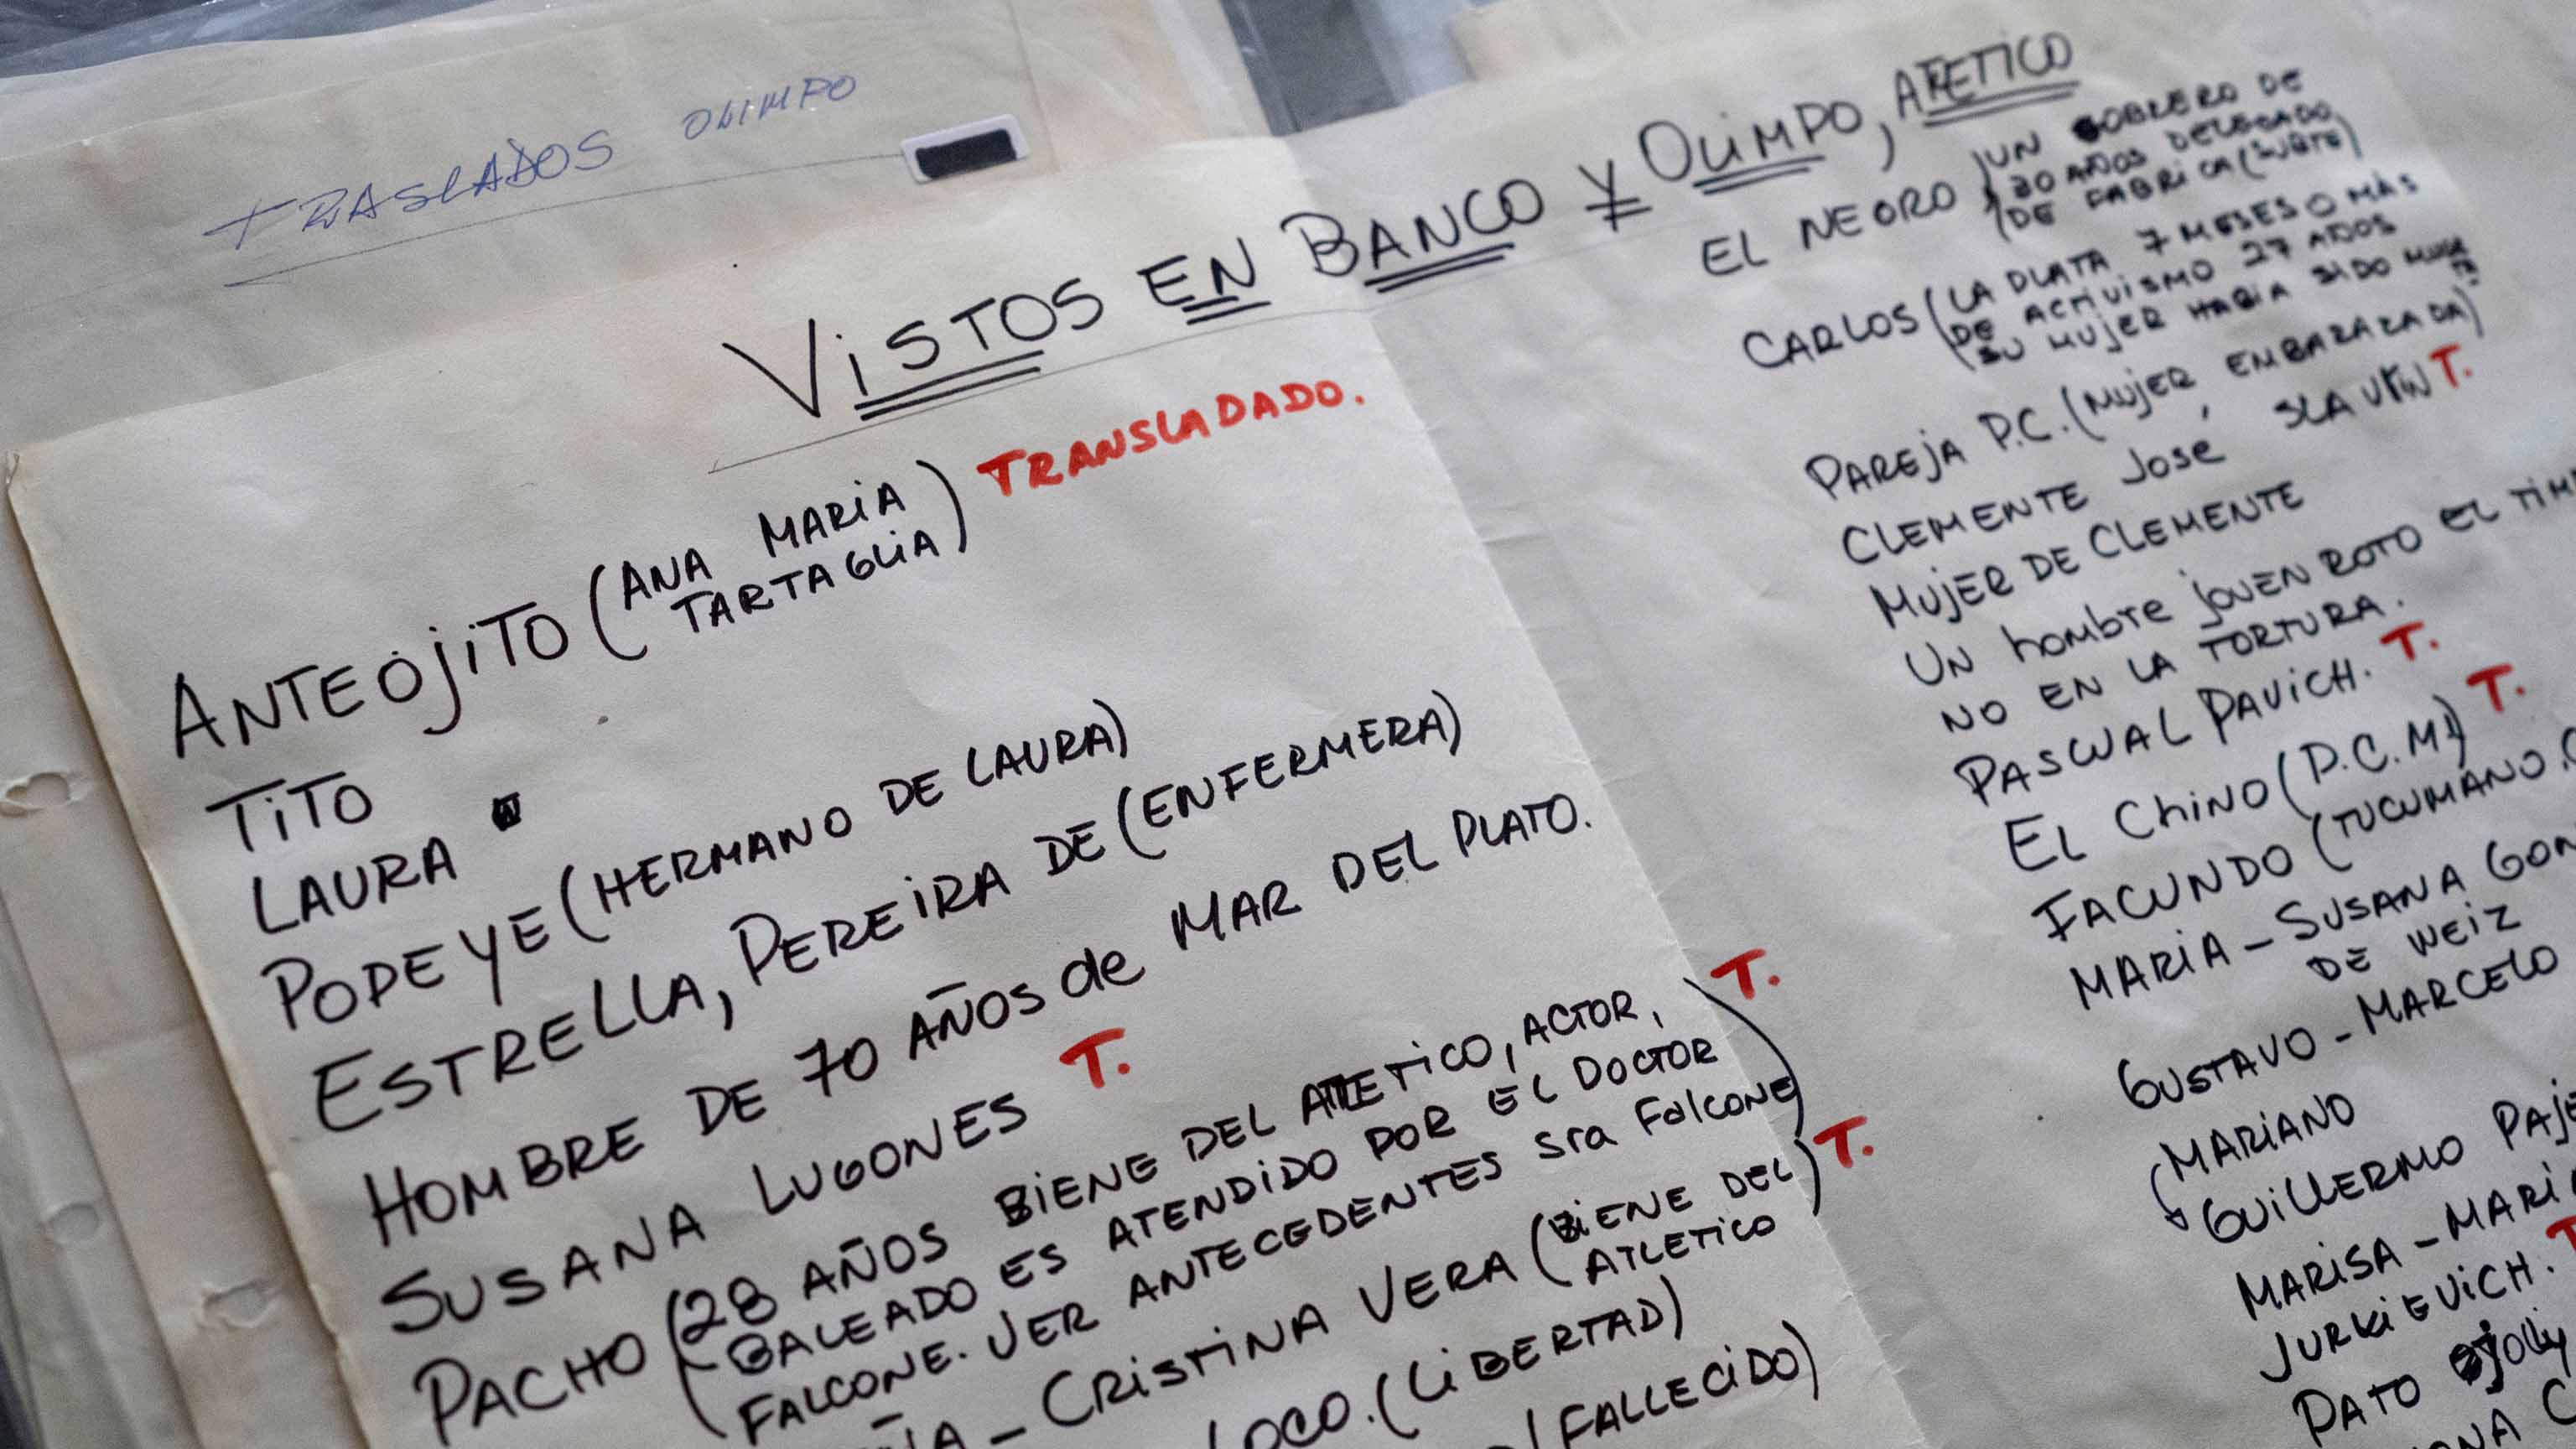 TRASLADOS OLIMPO
VISTOS EN BANCO Y OLIMPO, ATLETICO
ANTEOJITO (ANA MARIA TARTAGLIA) TRANSLADADO.
TITO
LAURA
POPEYE (HERMANO DE LAURA)
ESTRELLA, PEREIRA DE (ENFERMERA)
HOMBRE DE 70 AÑOS de MAR DEL PLATO.
SUSANA LUGONES T.
PACHO (28 AÑOS BIENE DEL ATLETICO, ACTOR,
BALEADO ES ATENDIDO POR EL DOCTOR
FALCONE. VER ANTECEDENTES Sra FalCONE) T.
CRISTINA VERA (BIENE DEL
ATLETICO) T.
LOCO. (LIBERTAD)
(FALLECIDO)
EL NEGRO (UN OBRERO DE
30 AÑOS DELEGADO
DE FABRICA (SUBTE)
CARLOS (LA PLATA 7 MESES O MÁS
DE ACTIVISMO 27 AÑOS
SU MUJER HABIA SIDO
PAREJA P.C. (MUJER EMBARAZADA)
CLEMENTE JOSE T.
MUJER DE CLEMENTE
UN hombre JOVEN ROTO EL
NO EN LA TORTURA.
PASCUAL PAVICH. T.
EL ChINO (P.C.M) T.
FACUNDO (TUCUMANO
MARIA - SUSANA
DE WEIZ
GUSTAVO - MARCELO
(MARIANO
GUILLERMO
MARISA -
JURKIEVICH. T
PATO Jolly